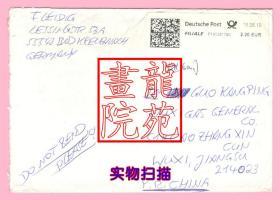 F. LEIDIG
LESSINGSTR. 53A
55543 BAD KREUZNACH
GERMANY
Deutsche Post
FILIALE
2,20 EUR
GUO KANGPING
GNS GENERAL
CO.
ZHANG XIN
CUN
WUXI, JIANGSU
214023
P.R. CHINA
DO NOT BEND
PLEASE
龍苑
畫院
实物扫描